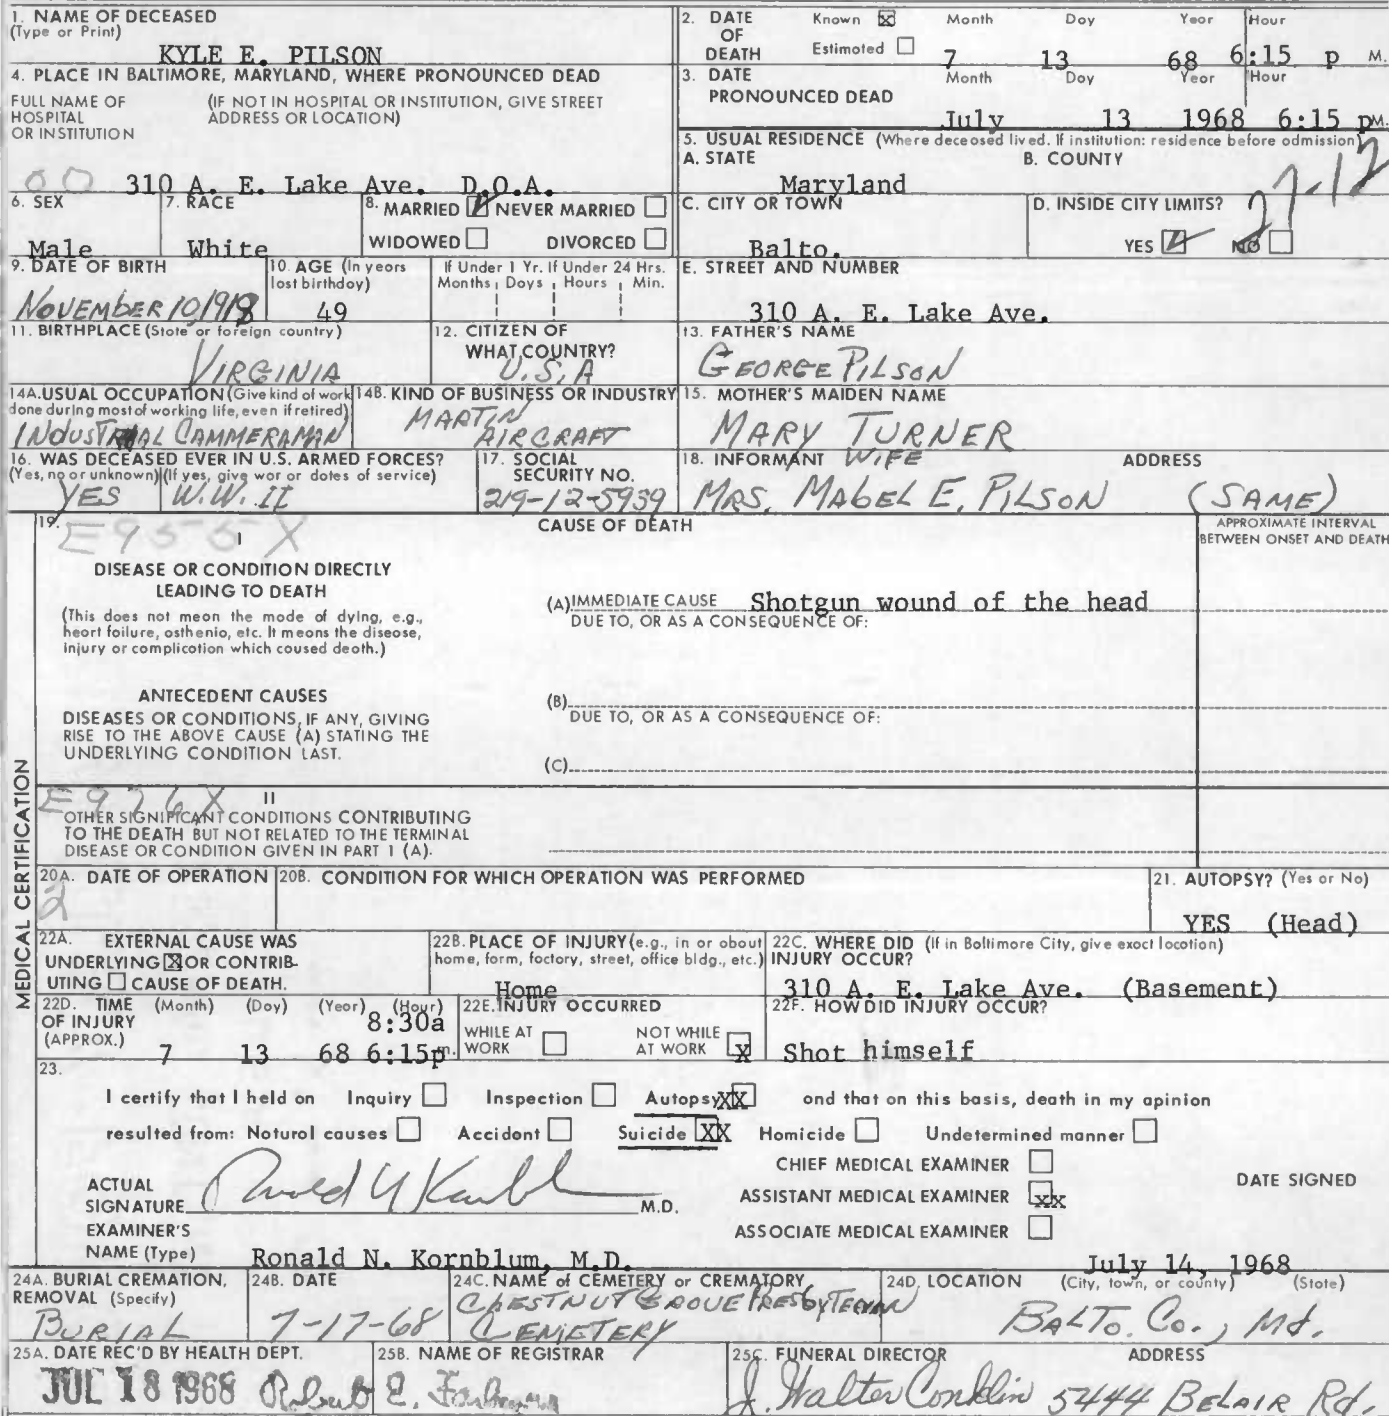 1. NAME OF DECEASED
(Type or Print)
KYLE E. PILSON
2. DATE OF DEATH Known ☒ Estimated ☐ Month Day Year Hour
7 13 68 6:15 p M.
4. PLACE IN BALTIMORE, MARYLAND, WHERE PRONOUNCED DEAD
FULL NAME OF HOSPITAL OR INSTITUTION
(IF NOT IN HOSPITAL OR INSTITUTION, GIVE STREET ADDRESS OR LOCATION)
00 310 A. E. Lake Ave. D.O.A.
3. DATE PRONOUNCED DEAD Month Day Year Hour
July 13 1968 6:15 pM.
5. USUAL RESIDENCE (Where deceased lived. If institution: residence before admission)
A. STATE B. COUNTY
Maryland
27-12
6. SEX
Male
7. RACE
White
8. MARRIED ☑ NEVER MARRIED ☐
WIDOWED ☐ DIVORCED ☐
C. CITY OR TOWN
Balto.
D. INSIDE CITY LIMITS?
YES ☑ NO ☐
9. DATE OF BIRTH
NOVEMBER 10, 1918
10. AGE (In years lost birthday)
49
If Under 1 Yr. If Under 24 Hrs.
Months Days Hours Min.
E. STREET AND NUMBER
310 A. E. Lake Ave.
11. BIRTHPLACE (State or foreign country)
VIRGINIA
12. CITIZEN OF WHAT COUNTRY?
U.S.A
13. FATHER'S NAME
GEORGE PILSON
14A. USUAL OCCUPATION (Give kind of work done during most of working life, even if retired)
INDUSTRIAL CAMMERAMAN
14B. KIND OF BUSINESS OR INDUSTRY
MARTIN
AIRCRAFT
15. MOTHER'S MAIDEN NAME
MARY TURNER
16. WAS DECEASED EVER IN U.S. ARMED FORCES?
(Yes, no or unknown) (If yes, give wor or dotes of service)
YES W.W. II
17. SOCIAL SECURITY NO.
219-12-5959
18. INFORMANT WIFE ADDRESS
MRS. MABEL E. PILSON (SAME)
19. CAUSE OF DEATH
APPROXIMATE INTERVAL BETWEEN ONSET AND DEATH
E955X
I
DISEASE OR CONDITION DIRECTLY
LEADING TO DEATH
(This does not meon the mode of dying, e.g.,
heort foilure, osthenio, etc. It meons the diseose,
injury or complication which coused death.)
(A) IMMEDIATE CAUSE Shotgun wound of the head
DUE TO, OR AS A CONSEQUENCE OF:
ANTECEDENT CAUSES
DISEASES OR CONDITIONS, IF ANY, GIVING
RISE TO THE ABOVE CAUSE (A) STATING THE
UNDERLYING CONDITION LAST.
(B)
DUE TO, OR AS A CONSEQUENCE OF:
(C)
MEDICAL CERTIFICATION
E976X
II
OTHER SIGNIFICANT CONDITIONS CONTRIBUTING
TO THE DEATH BUT NOT RELATED TO THE TERMINAL
DISEASE OR CONDITION GIVEN IN PART 1 (A).
20A. DATE OF OPERATION
2
20B. CONDITION FOR WHICH OPERATION WAS PERFORMED
21. AUTOPSY? (Yes or No)
YES (Head)
22A. EXTERNAL CAUSE WAS
UNDERLYING ☒ OR CONTRIB-
UTING ☐ CAUSE OF DEATH.
22B. PLACE OF INJURY (e.g., in or obout
home, form, foctory, street, office bldg., etc.)
Home
22C. WHERE DID (If in Boltimore City, give exoct locotion)
INJURY OCCUR?
310 A. E. Lake Ave. (Basement)
22D. TIME OF INJURY (APPROX.) (Month) (Day) (Year) (Hour)
8:30a
7 13 68 6:15p m.
22E. INJURY OCCURRED
WHILE AT WORK ☐ NOT WHILE AT WORK ☒
22F. HOW DID INJURY OCCUR?
Shot himself
23.
I certify that I held on Inquiry ☐ Inspection ☐ Autopsy XX ond that on this basis, death in my opinion
resulted from: Noturol causes ☐ Accident ☐ Suicide XX Homicide ☐ Undetermined manner ☐
ACTUAL SIGNATURE M.D.
CHIEF MEDICAL EXAMINER ☐
ASSISTANT MEDICAL EXAMINER xx
ASSOCIATE MEDICAL EXAMINER ☐
DATE SIGNED
EXAMINER'S NAME (Type) Ronald N. Kornblum, M.D.
July 14, 1968
24A. BURIAL CREMATION, REMOVAL (Specify)
BURIAL
24B. DATE
7-17-68
24C. NAME of CEMETERY or CREMATORY
CHESTNUT GROVE PRESBYTERIAN
CEMETERY
24D. LOCATION (City, town, or county) (State)
BALTO. Co., Md.
25A. DATE REC'D BY HEALTH DEPT.
JUL 18 1968
25B. NAME OF REGISTRAR
Robert E.
25C. FUNERAL DIRECTOR ADDRESS
J. Walter Conklin 5444 BELAIR Rd.